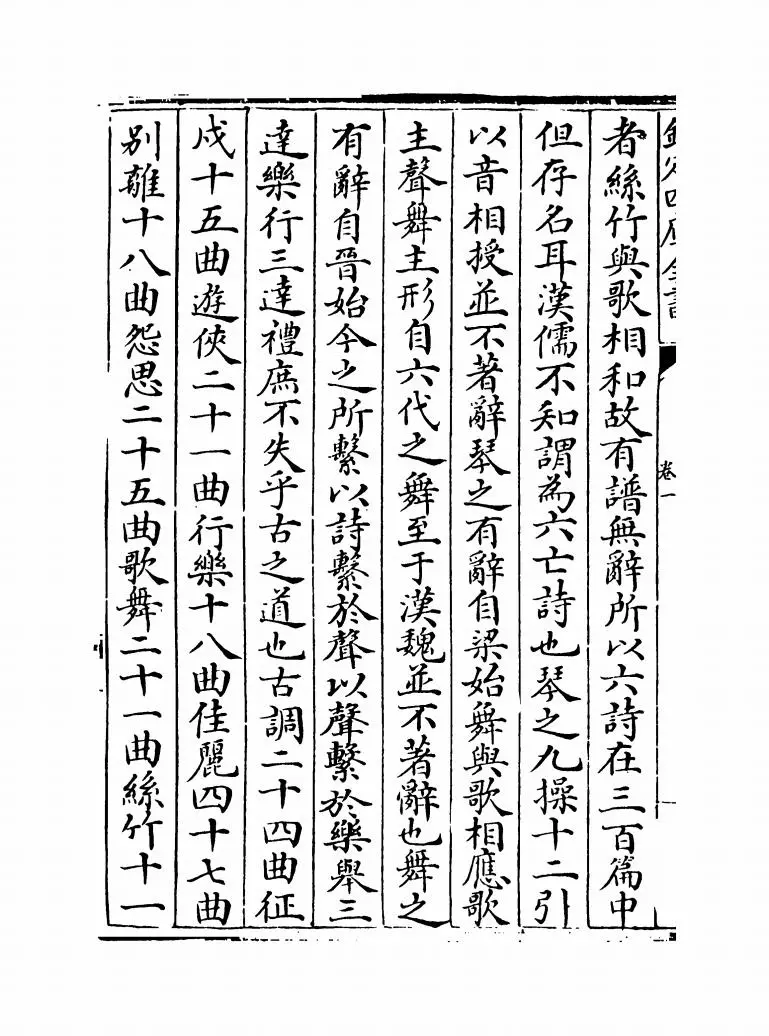 欽定四庫全書
卷一
者絲竹與歌相和故有譜無辭所以六詩在三百篇中
但存名耳漢儒不知謂為六亡詩也琴之九操十二引
以音相授並不著辭琴之有辭自梁始舞與歌相應歌
主聲舞主形自六代之舞至于漢魏並不著辭也舞之
有辭自晉始今之所繫以詩繫於聲以聲繫於樂舉三
達樂行三達禮庶不失乎古之道也古調二十四曲征
戍十五曲遊俠二十一曲行樂十八曲佳麗四十七曲
别離十八曲怨思二十五曲歌舞二十一曲絲竹十一